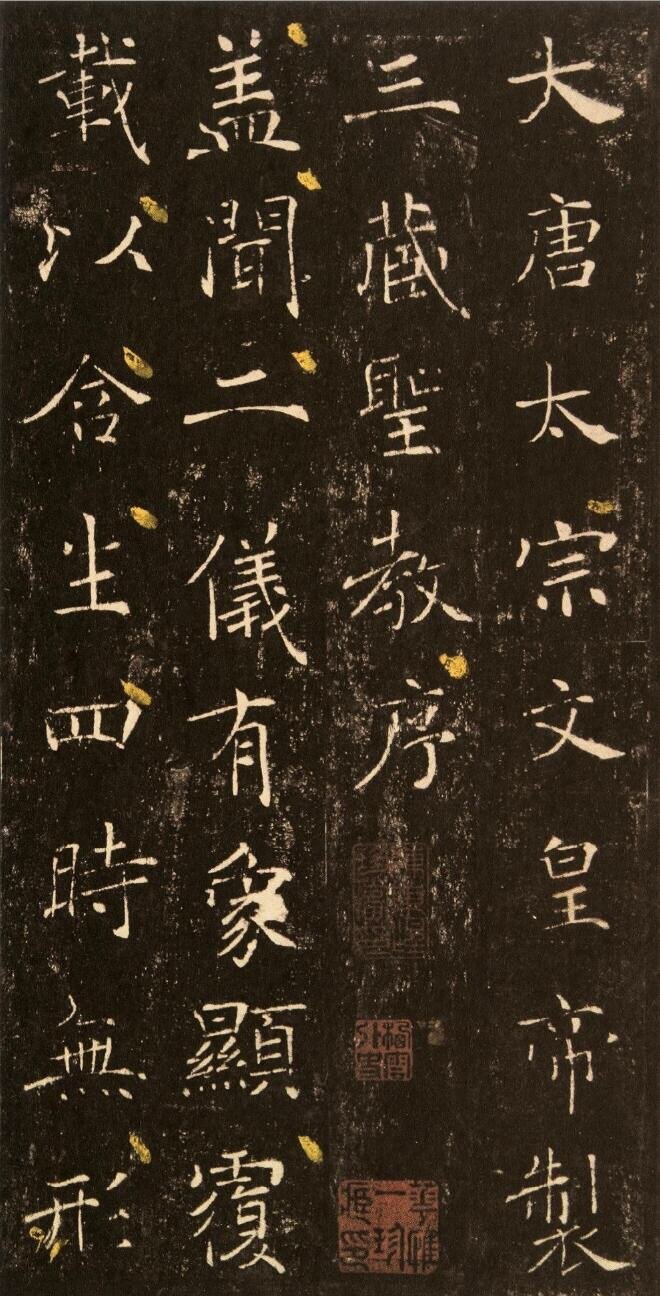 大唐太宗文皇帝製
三藏聖教序
盖聞二儀有象顯覆
載以含生四時無形